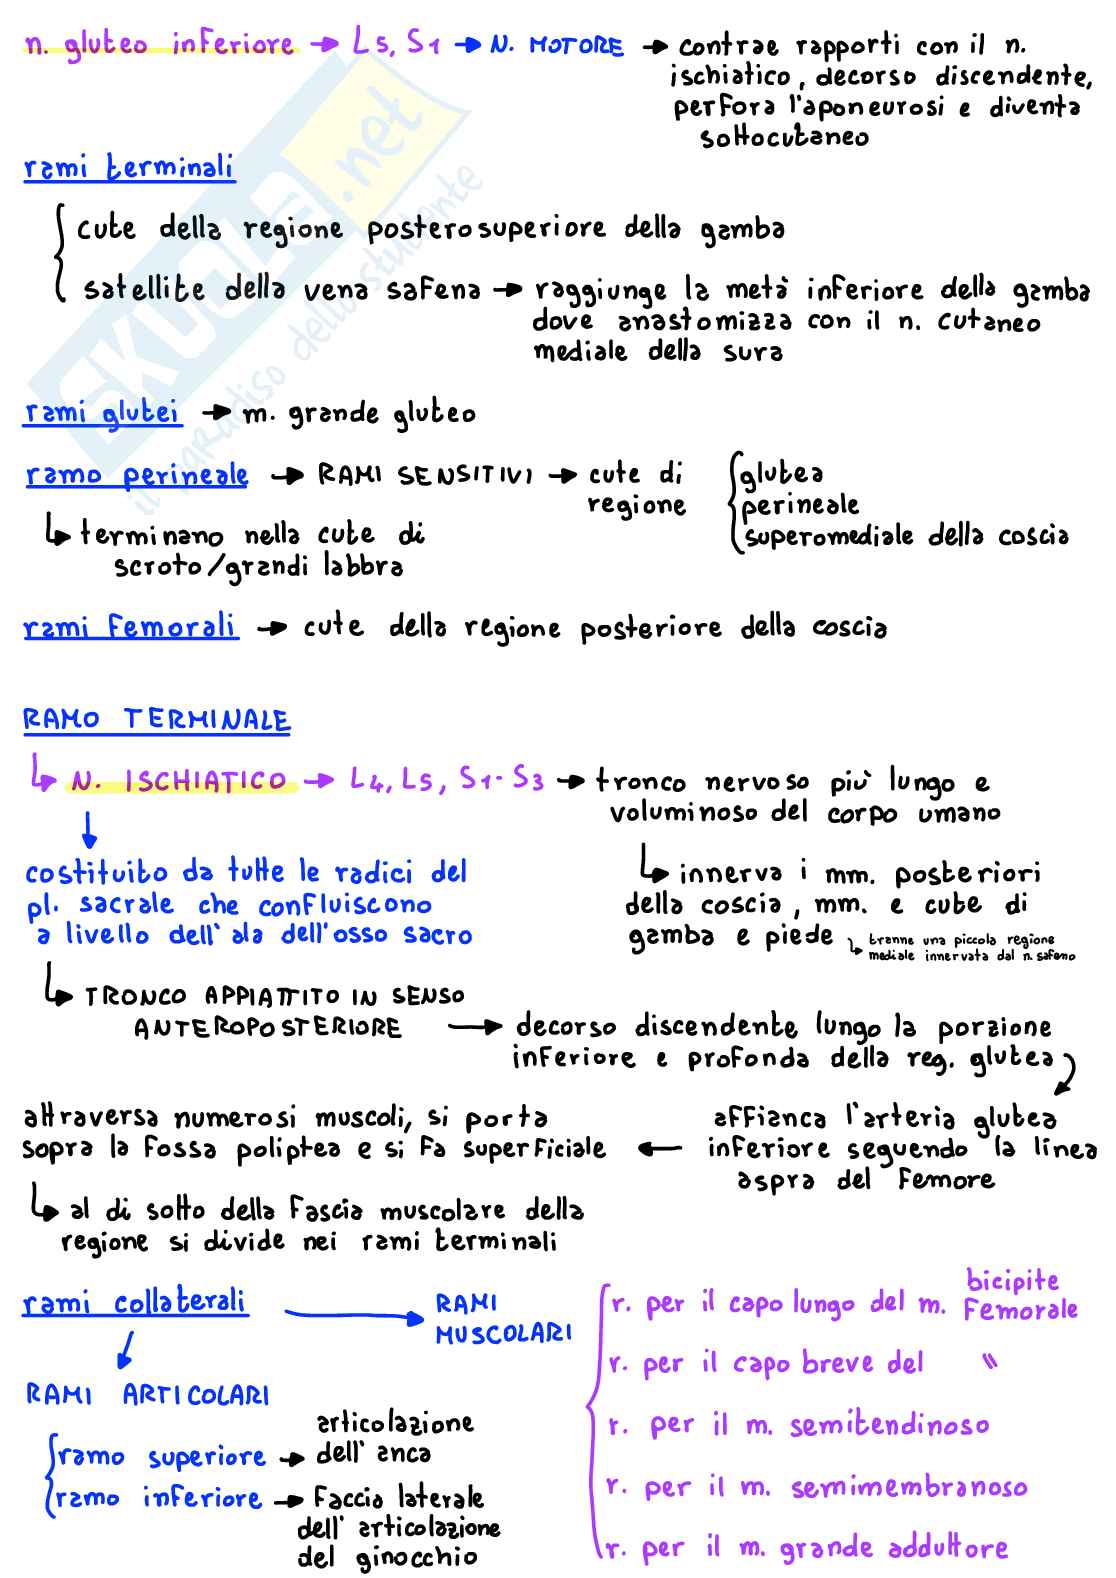 n. gluteo inferiore → L5, S1 → N. MOTORE → contrae rapporti con il n.
ischiatico, decorso discendente,
perfora l'aponeurosi e diventa
sottocutaneo
rami terminali
cute della regione posterosuperiore della gamba
satellite della vena safena → raggiunge la metà inferiore della gamba
dove anastomizza con il n. cutaneo
mediale della sura
rami glutei → m. grande gluteo
ramo perineale → RAMI SENSITIVI → cute di
regione
glutea
perineale
superomediale della coscia
↳ terminano nella cute di
scroto/grandi labbra
rami femorali → cute della regione posteriore della coscia
RAMO TERMINALE
↳ N. ISCHIATICO → L4, L5, S1-S3 → tronco nervoso più lungo e
voluminoso del corpo umano
↳ innerva i mm. posteriori
della coscia, mm. e cute di
gamba e piede ↳ tranne una piccola regione
mediale innervata dal n. safeno
costituito da tutte le radici del
pl. sacrale che confluiscono
a livello dell'ala dell'osso sacro
↳ TRONCO APPIATTITO IN SENSO
ANTEROPOSTERIORE → decorso discendente lungo la porzione
inferiore e profonda della reg. glutea
affianca l'arteria glutea
inferiore seguendo la linea
aspra del femore
attraversa numerosi muscoli, si porta
sopra la fossa poliptea e si fa superficiale
↳ al di sotto della fascia muscolare della
regione si divide nei rami terminali
rami collaterali → RAMI
MUSCOLARI
r. per il capo lungo del m. bicipite
femorale
r. per il capo breve del "
r. per il m. semitendinoso
r. per il m. semimembranoso
r. per il m. grande adduttore
RAMI ARTICOLARI
ramo superiore → articolazione
dell'anca
ramo inferiore → faccia laterale
dell'articolazione
del ginocchio
SKUOLA.net
il paradiso dello studente